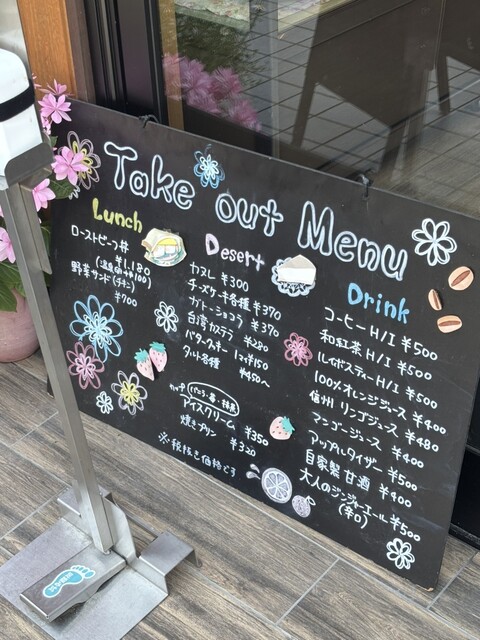 Take out Menu
Lunch
ローストビーフ丼
¥1,180
(温泉卵付100)
野菜サンド(チキン)
¥700
Desert
カヌレ ¥300
チーズケーキ各種 ¥390
ガトーショコラ ¥390
台湾カステラ ¥280
バタークッキー 1コ¥150
タルト各種 ¥450〜
カップ
アイスクリーム ¥350
焼きプリン ¥320
※税抜き価格です
Drink
コーヒー H/I ¥500
和紅茶 H/I ¥500
ルイボスティー H/I ¥500
100%オレンジジュース ¥400
信州 リンゴジュース ¥480
マンゴージュース ¥400
アップルタイザー ¥500
自家製 甘酒 ¥400
大人のジンジャーエール ¥500
(辛口)